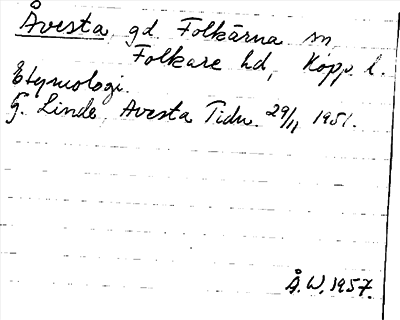 Åvesta, gd. Folkärna sn,
Folkare hd, Kopp. l.
Etymologi.
G. Linde, Avesta Tidn. 29/11 1951.
Å.W. 1957.